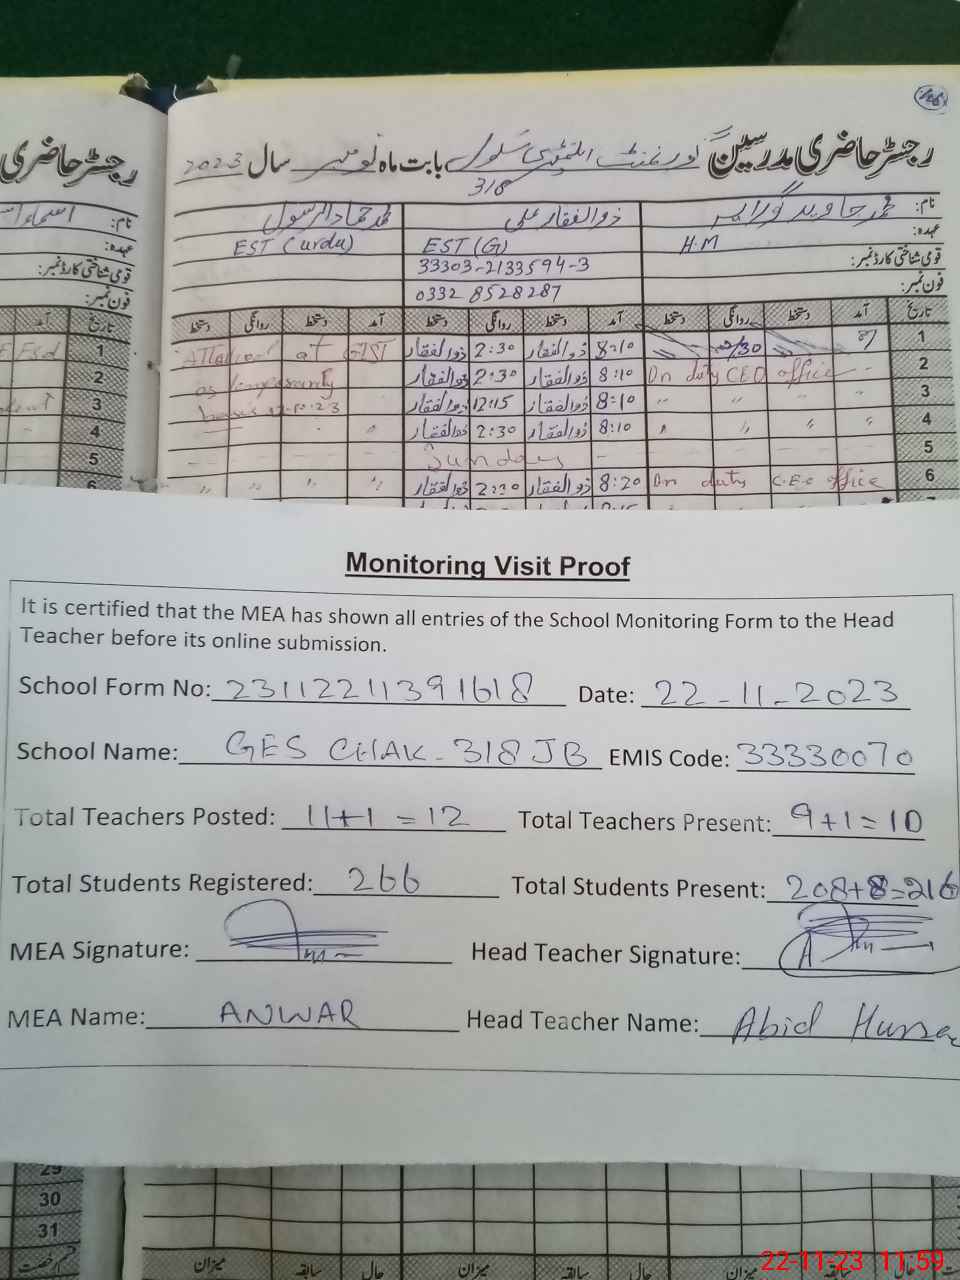 رجسٹر حاضری مدرسین گورنمنٹ ایلیمنٹری سکول 318 بابت ماہ نومبر سال 2023
رجسٹر حاضری
نام: محمد جاوید ذوالفقار علی محمد حماد الرسول
نام: اسماء
عہدہ: H.M EST (G) EST (urdu)
عہدہ:
قومی شناختی کارڈ نمبر: 33303-2133594-3
قومی شناختی کارڈ نمبر:
فون نمبر: 0332 8528287
فون نمبر:
تاریخ آمد دستخط روانگی دستخط آمد دستخط روانگی دستخط آمد دستخط روانگی دستخط
تاریخ آمد
1 8:10 ذوالفقار 2:30 ذوالفقار at
2 On duty CEO office 8:10 ذوالفقار 2:30 ذوالفقار as temporarily
3 " " " 8:10 ذوالفقار 12:15 ذوالفقار
4 " " " " 8:10 ذوالفقار 2:30 ذوالفقار
5 Sunday
6 On duty C.E.O office 8:20 ذوالفقار ذوالفقار " " " "
1
2
3
4
5
6
Monitoring Visit Proof
It is certified that the MEA has shown all entries of the School Monitoring Form to the Head
Teacher before its online submission.
School Form No: 23112211391618 Date: 22-11-2023
School Name: GES CHAK-318 JB EMIS Code: 33330070
Total Teachers Posted: 11+1=12 Total Teachers Present: 9+1=10
Total Students Registered: 266 Total Students Present: 208+8=216
MEA Signature: Head Teacher Signature:
MEA Name: ANWAR Head Teacher Name: Abid Hussa
29
30
31
میزان سابقہ حالی میزان سابقہ حالی میزان
قسم رخصت
22-11-23 11:59